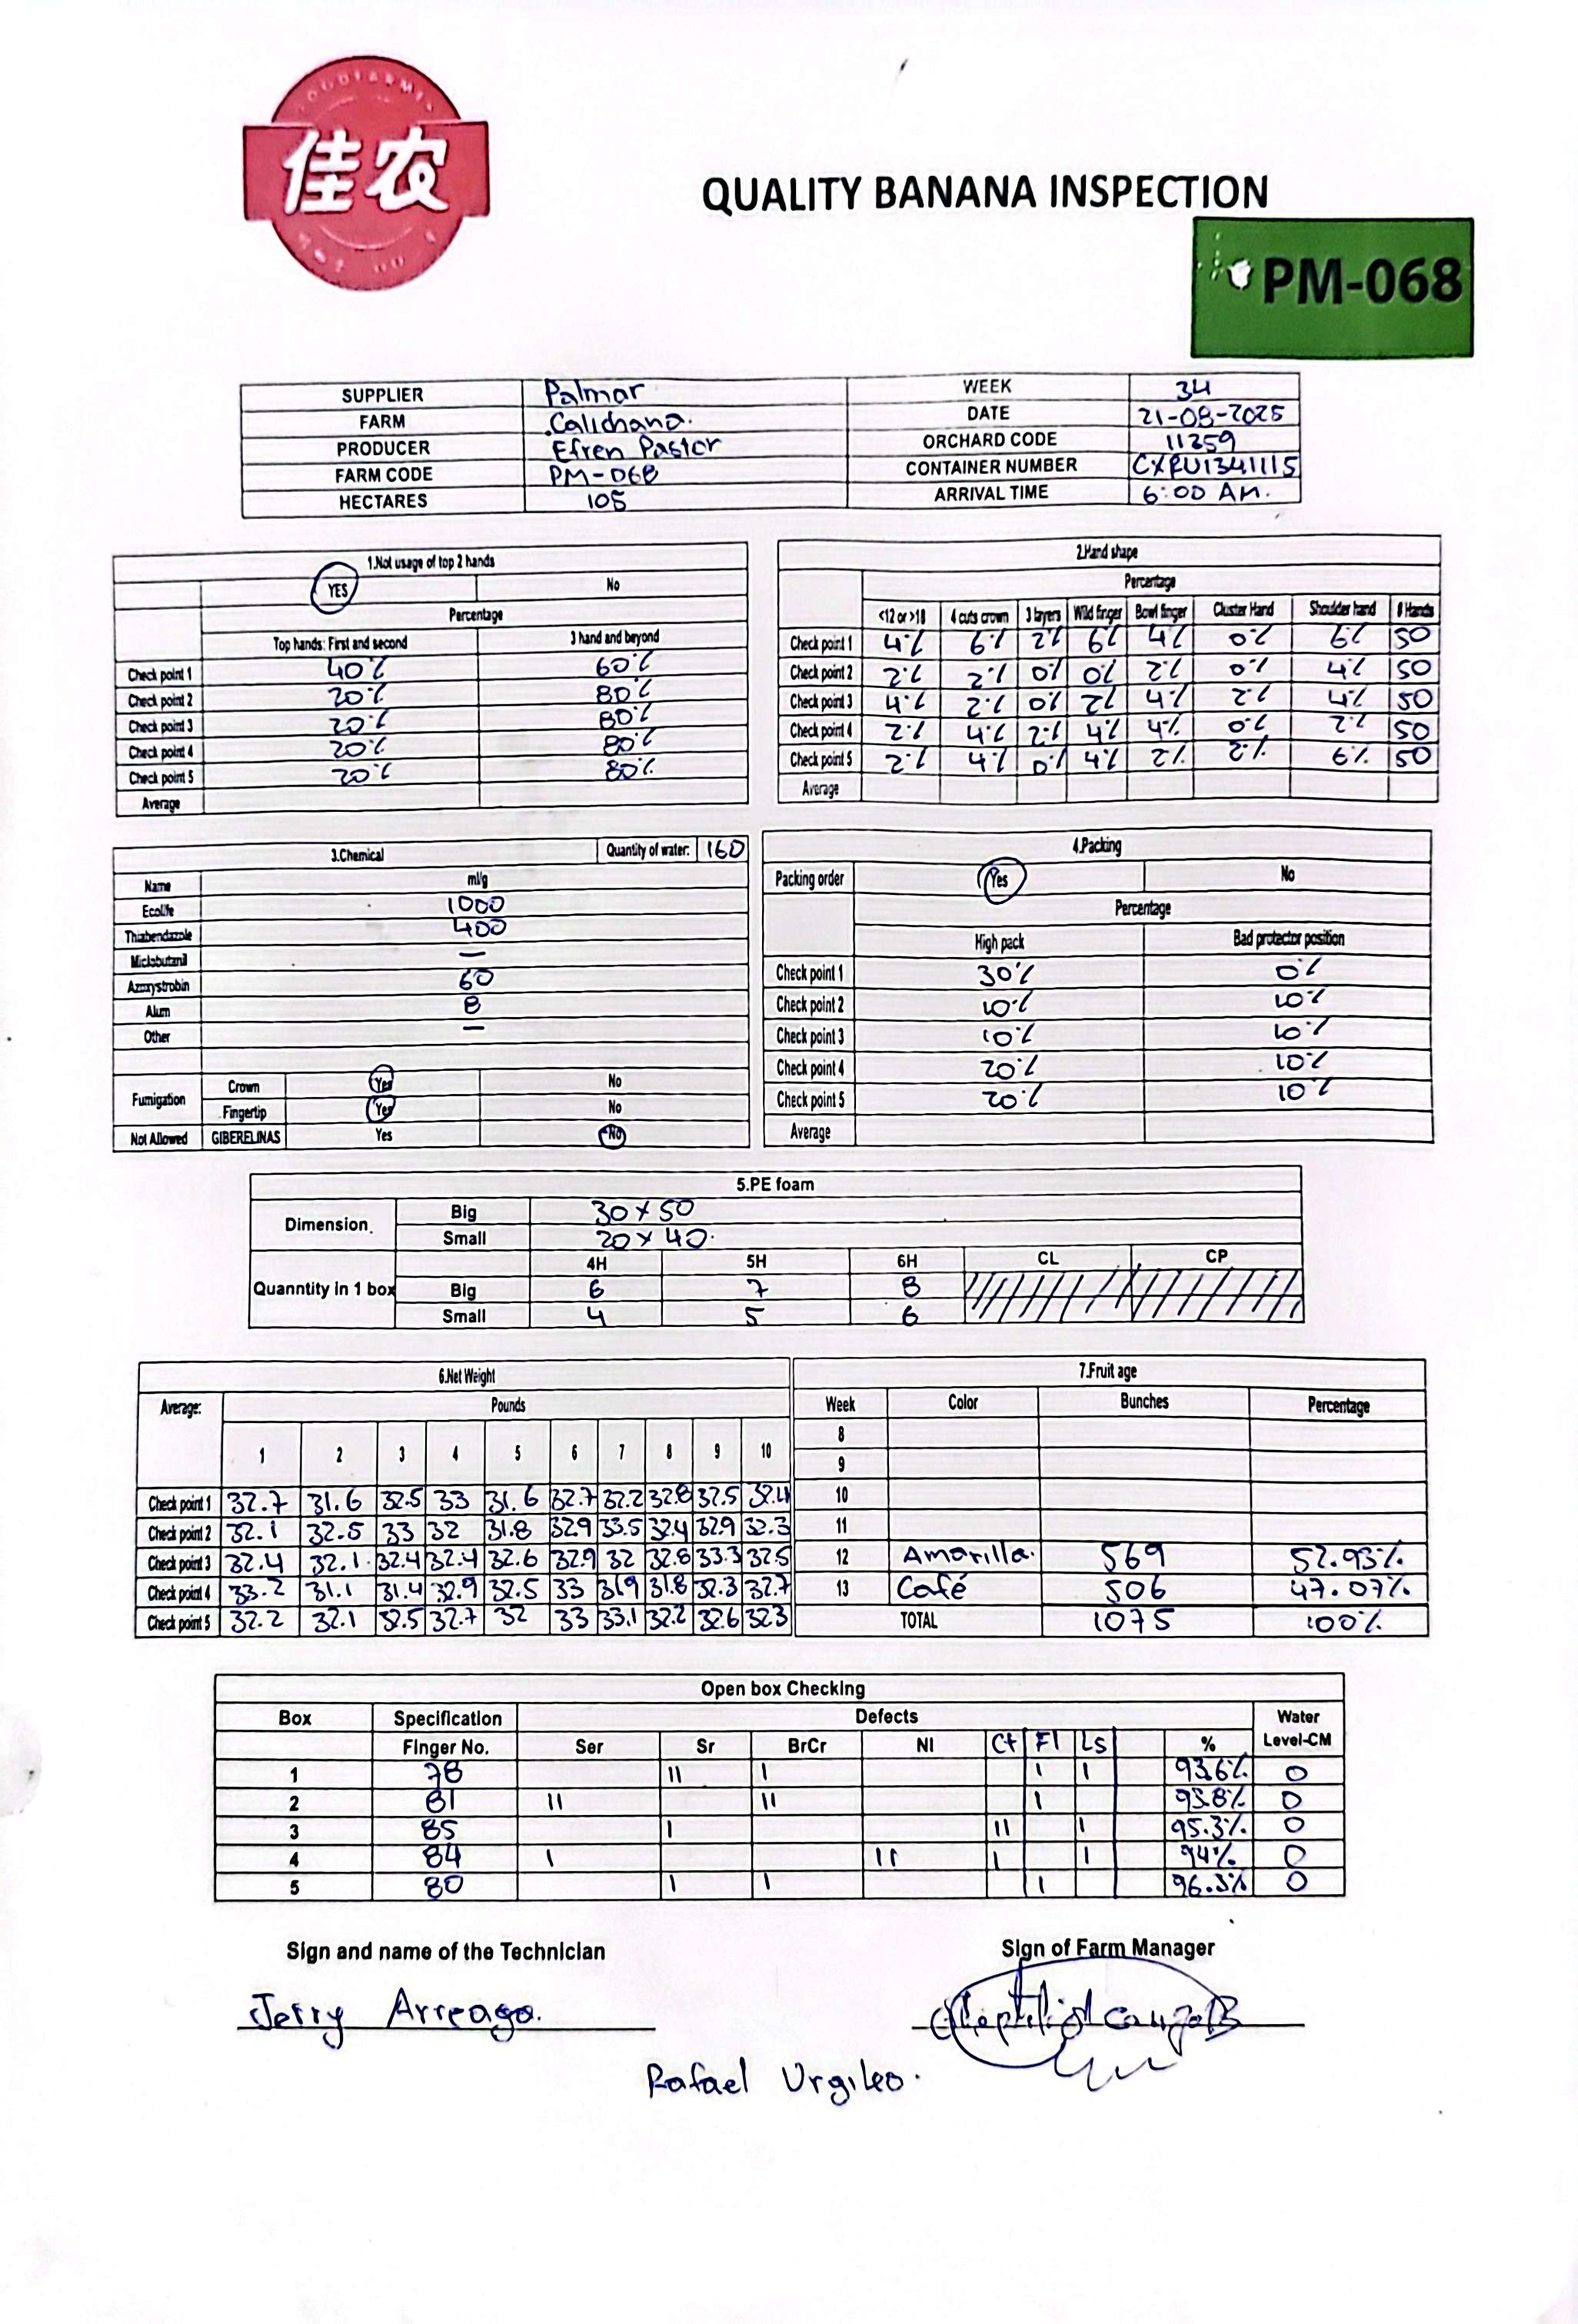 佳农
QUALITY BANANA INSPECTION
PM-068
SUPPLIER Palmar WEEK 34
FARM Calichana. DATE 21-08-2025
PRODUCER Efren Pastor ORCHARD CODE 11259
FARM CODE PM-068 CONTAINER NUMBER CXRU1341115
HECTARES 105 ARRIVAL TIME 6:00 AM.
1.Not usage of top 2 hands
YES No
Percentage
Top hands: First and second 3 hand and beyond
Check point 1 40% 60%
Check point 2 20% 80%
Check point 3 20% 80%
Check point 4 20% 80%
Check point 5 20% 80%
Average
2.Hand shape
Percentage
<12 or >18 4 cuts crown 3 layers Wild finger Bowl finger Cluster Hand Shoulder hand # Hands
Check point 1 4% 6% 2% 6% 4% 0% 6% 50
Check point 2 2% 2% 0% 0% 2% 0% 4% 50
Check point 3 4% 2% 0% 2% 4% 2% 4% 50
Check point 4 2% 4% 2% 4% 4% 0% 2% 50
Check point 5 2% 4% 0% 4% 2% 2% 6% 50
Average
3.Chemical Quantity of water: 160
Name ml/g
Ecolife 1000
Thiabendazole 400
Miclobutanil —
Azoxystrobin 60
Alum 8
Other —
Fumigation Crown Yes No
Fingertip Yes No
Not Allowed GIBERELINAS Yes No
4.Packing
Packing order Yes No
Percentage
High pack Bad protector position
Check point 1 30% 0%
Check point 2 10% 10%
Check point 3 10% 10%
Check point 4 20% 10%
Check point 5 20% 10%
Average
5.PE foam
Dimension. Big 30 x 50
Small 20 x 40.
Quanntity in 1 box 4H 5H 6H CL CP
Big 6 7 8
Small 4 5 6
6.Net Weight
Average: Pounds
1 2 3 4 5 6 7 8 9 10
Check point 1 32.7 31.6 32.5 33 31.6 32.7 32.2 32.8 32.5 32.4
Check point 2 32.1 32.5 33 32 31.8 32.9 33.5 32.4 32.9 32.3
Check point 3 32.4 32.1 32.4 32.4 32.6 32.9 32 32.8 33.3 32.5
Check point 4 33.2 31.1 31.4 32.9 32.5 33 31.9 31.8 32.3 32.7
Check point 5 32.2 32.1 32.5 32.7 32 33 33.1 32.2 32.6 32.3
7.Fruit age
Week Color Bunches Percentage
8
9
10
11
12 Amarilla. 569 52.93%
13 Café 506 47.07%
TOTAL 1075 100%
Open box Checking
Box Specification Defects Water
Finger No. Ser Sr BrCr NI Ct Fl Ls % Level-CM
1 78 II I I I 93.6% 0
2 81 II II I 93.8% 0
3 85 I II I 95.3% 0
4 84 I II I I 94% 0
5 80 I I I 96.3% 0
Sign and name of the Technician Sign of Farm Manager
Jerry Arreaga.
Rafael Urgiles.